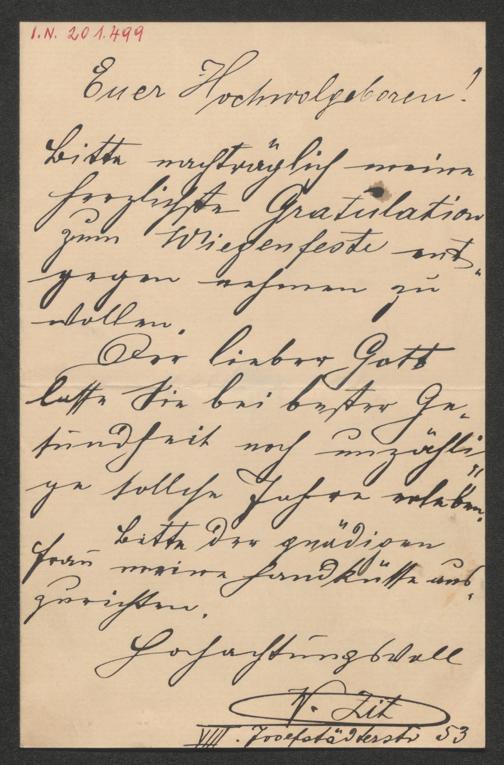 I.N. 201.499
Euer Hochwolgeboren!
Bitte nachträglich meine
herzlichste Gratulation
zum Wiegenfeste ent-
gegen nehmen zu
wollen.
Der lieber Gott
lasse Sie bei bester Ge-
sundheit noch unzähli-
ge sollche Jahre erleben.
Bitte der gnädigen
Frau meine Handküsse aus-
zurichten.
Hochachtungsvoll
V. Zit
VIII. Josefstädterstr 53